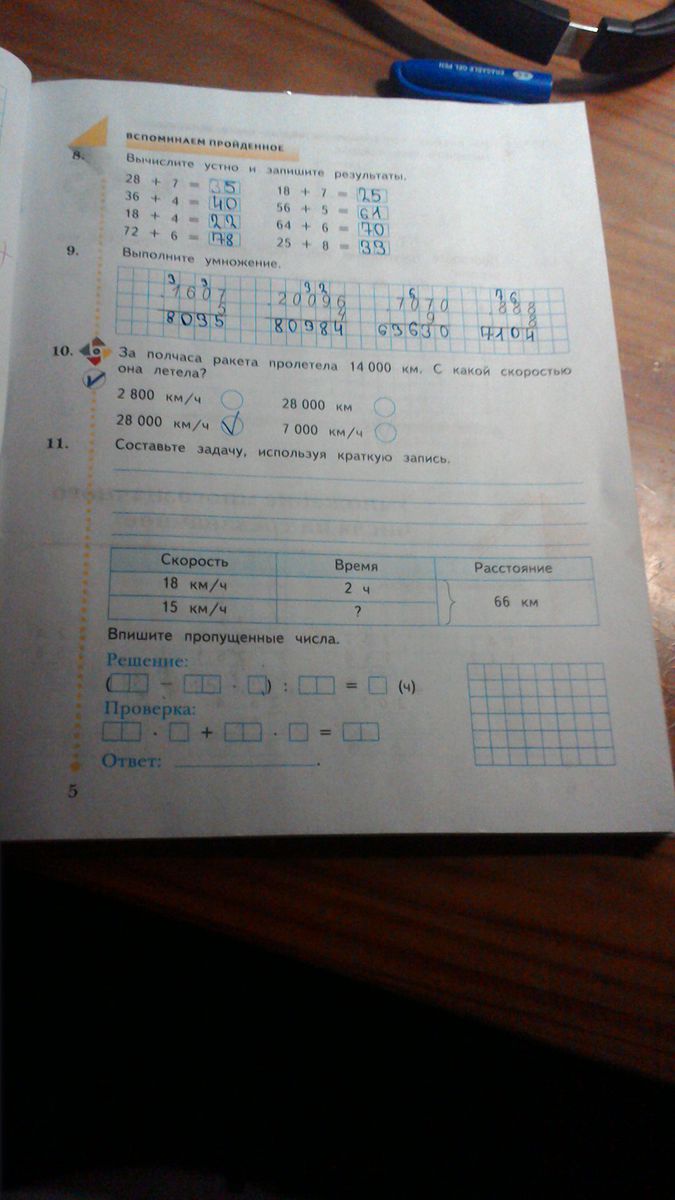 ERASABLE GEL PEN
ВСПОМИНАЕМ ПРОЙДЕННОЕ
8. Вычислите устно и запишите результаты.
28 + 7 = 35 18 + 7 = 25
36 + 4 = 40 56 + 5 = 61
18 + 4 = 22 64 + 6 = 70
72 + 6 = 78 25 + 8 = 33
9. Выполните умножение.
3 3 3 2 6 7 6
1607 20096 7070 888
5 4 9 8
8035 80384 63630 7104
10. За полчаса ракета пролетела 14 000 км. С какой скоростью
она летела?
2 800 км/ч 28 000 км
28 000 км/ч 7 000 км/ч
11. Составьте задачу, используя краткую запись.
Скорость Время Расстояние
18 км/ч 2 ч 66 км
15 км/ч ?
Впишите пропущенные числа.
Решение:
( – · ) : = (ч)
Проверка:
· + · =
Ответ: .
5